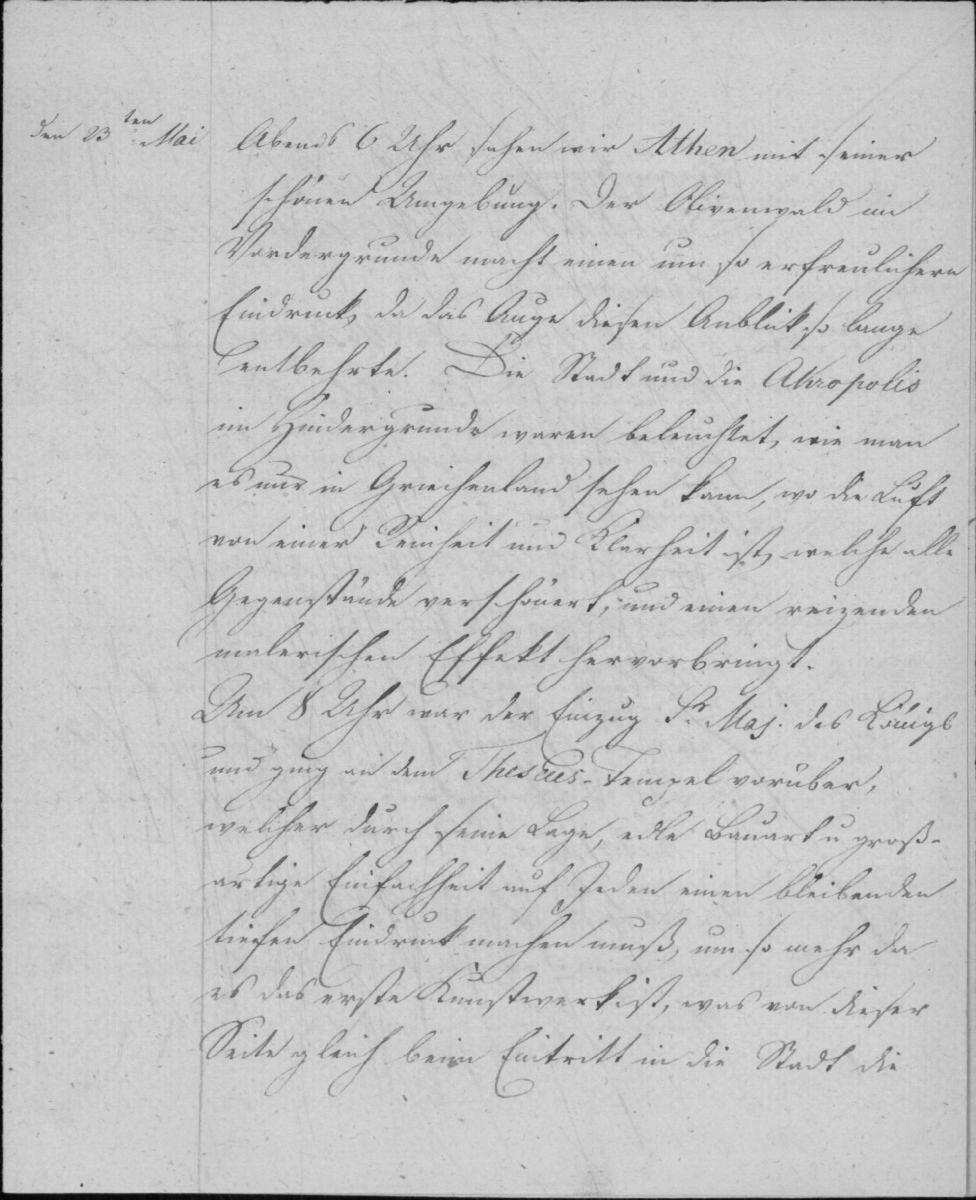 den 23ten Mai
Abends 6 Uhr sahen wir Athen mit seiner
schönen Umgebung. Der Olivenwald im
Vordergrunde macht einen um so erfreulichern
Eindruck, da das Auge diesen Anblick so lange
entbehrte. Die Stadt und die Akropolis
im Hindergrunde waren beleuchtet, wie man
es nur in Griechenland sehen kann, wo die Luft
von einer Reinheit und Klarheit ist, welche alle
Gegenstände verschönert, und einen reizenden
malerischen Effekt hervorbringt.
Um 8 Uhr war der Einzug Sr. Maj. des Königs
und ging an dem Theseus-Tempel vorüber,
welcher durch seine Lage, edle Bauart u groß-
artige Einfachheit auf Jeden einen bleibenden
tiefen Eindruck machen muß, um so mehr da
es das erste Kunstwerk ist, was von dieser
Seite gleich beim Eintritt in die Stadt die